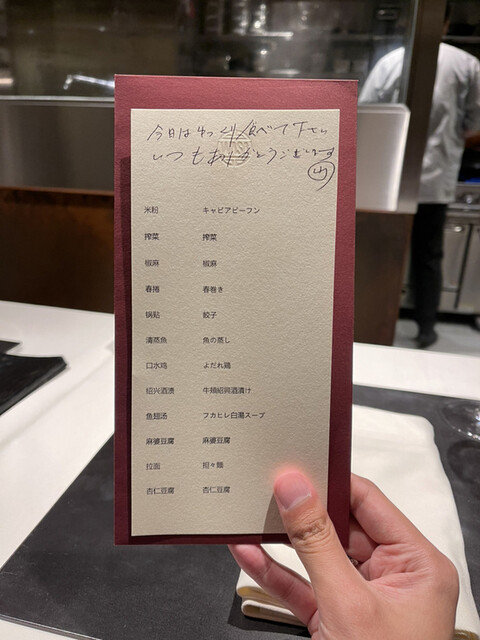 今日はゆっくり食べて下さい
いつもありがとうございます
山
米粉 キャビアビーフン
搾菜 搾菜
椒麻 椒麻
春捲 春巻き
锅贴 餃子
清蒸魚 魚の蒸し
口水鸡 よだれ鶏
绍兴酒漬 牛頬紹興酒漬け
鱼翅汤 フカヒレ白湯スープ
麻婆豆腐 麻婆豆腐
拉面 担々麺
杏仁豆腐 杏仁豆腐